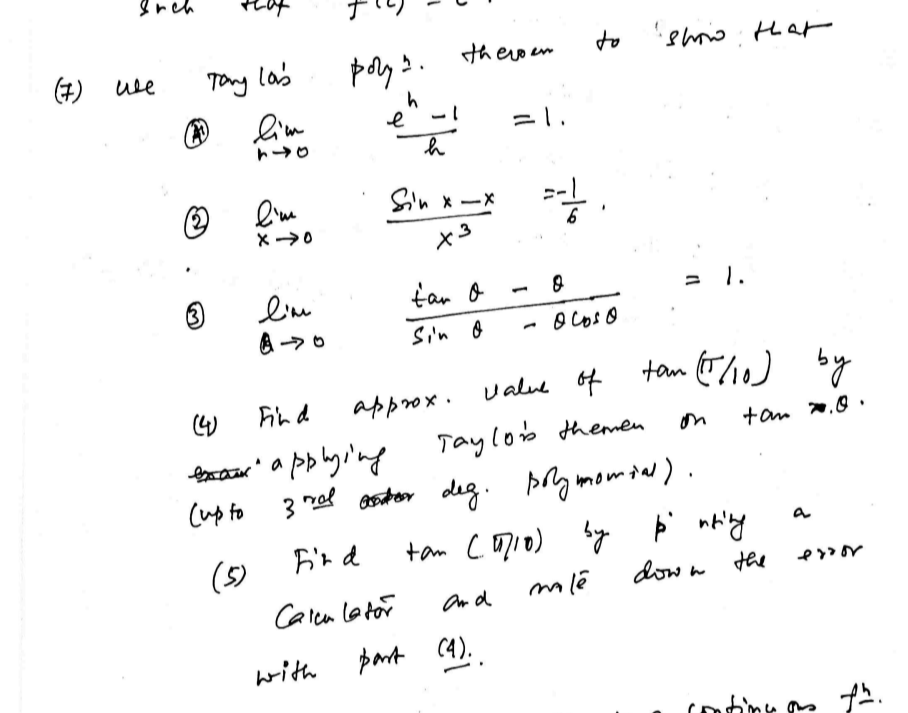 such that f(c) =
(7) use Taylor's poly n. theroem to show that
(1) lim h→0 (e^h − 1)/h = 1.
(2) lim x→0 (Sin x − x)/x^3 = −1/6.
(3) lim θ→0 (tan θ − θ)/(Sin θ − θ cos θ) = 1.
(4) Find approx. value of tan (π/10) by
applying Taylor's themen on tan θ.
(upto 3rd deg. polynomial).
(5) Find tan (π/10) by a
Calculator and note down the error
with part (4).
continuous fn.